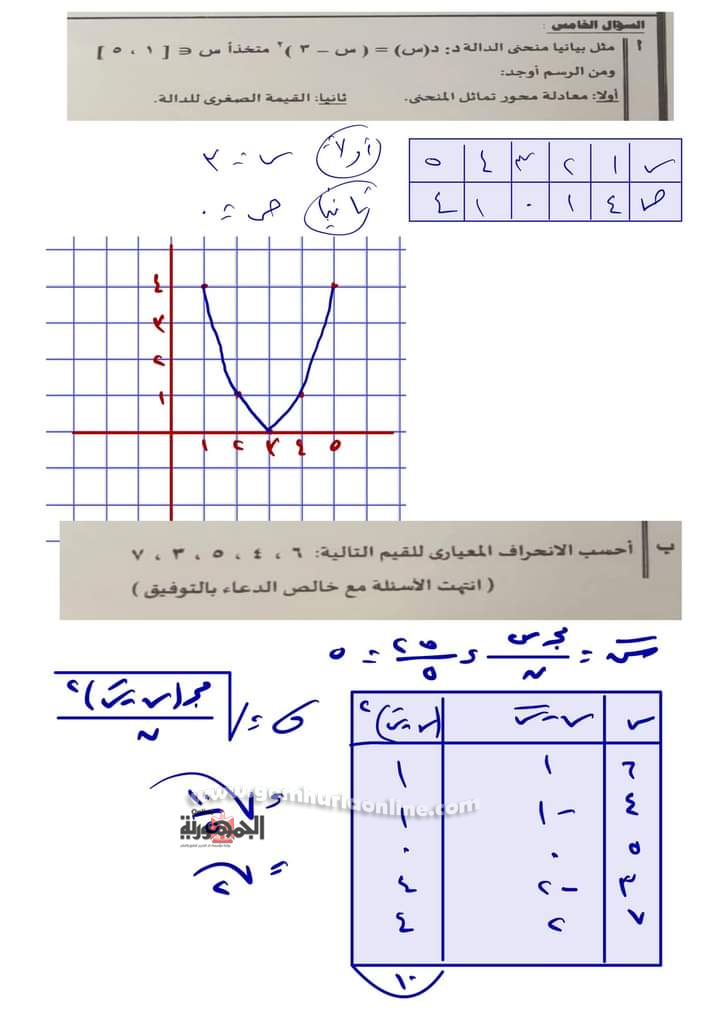 السؤال الخامس :
أ مثل بيانيا منحنى الدالة د: د(س) = ( س – ٣ )² متخذاً س ∈ [ ١ ، ٥ ]
ومن الرسم أوجد:
أولا: معادلة محور تماثل المنحنى. ثانيا: القيمة الصغرى للدالة.
أولا س = ٣
ثانيا ص = ٠
س ١ ٢ ٣ ٤ ٥
ص ٤ ١ ٠ ١ ٤
٤
٣
٢
١
١ ٢ ٣ ٤ ٥
ب أحسب الانحراف المعيارى للقيم التالية: ٦ ، ٤ ، ٥ ، ٣ ، ٧
( انتهت الأسئلة مع خالص الدعاء بالتوفيق )
س̄ = مجـ س / ن = ٢٥ / ٥ = ٥
σ = √(مجـ (س - س̄)² / ن)
= √(١٠ / ٥)
= √٢
س س - س̄ (س - س̄)²
٦ ١ ١
٤ -١ ١
٥ ٠ ٠
٣ -٢ ٤
٧ ٢ ٤
١٠
www.gomhuriaonline.com
الجمهورية